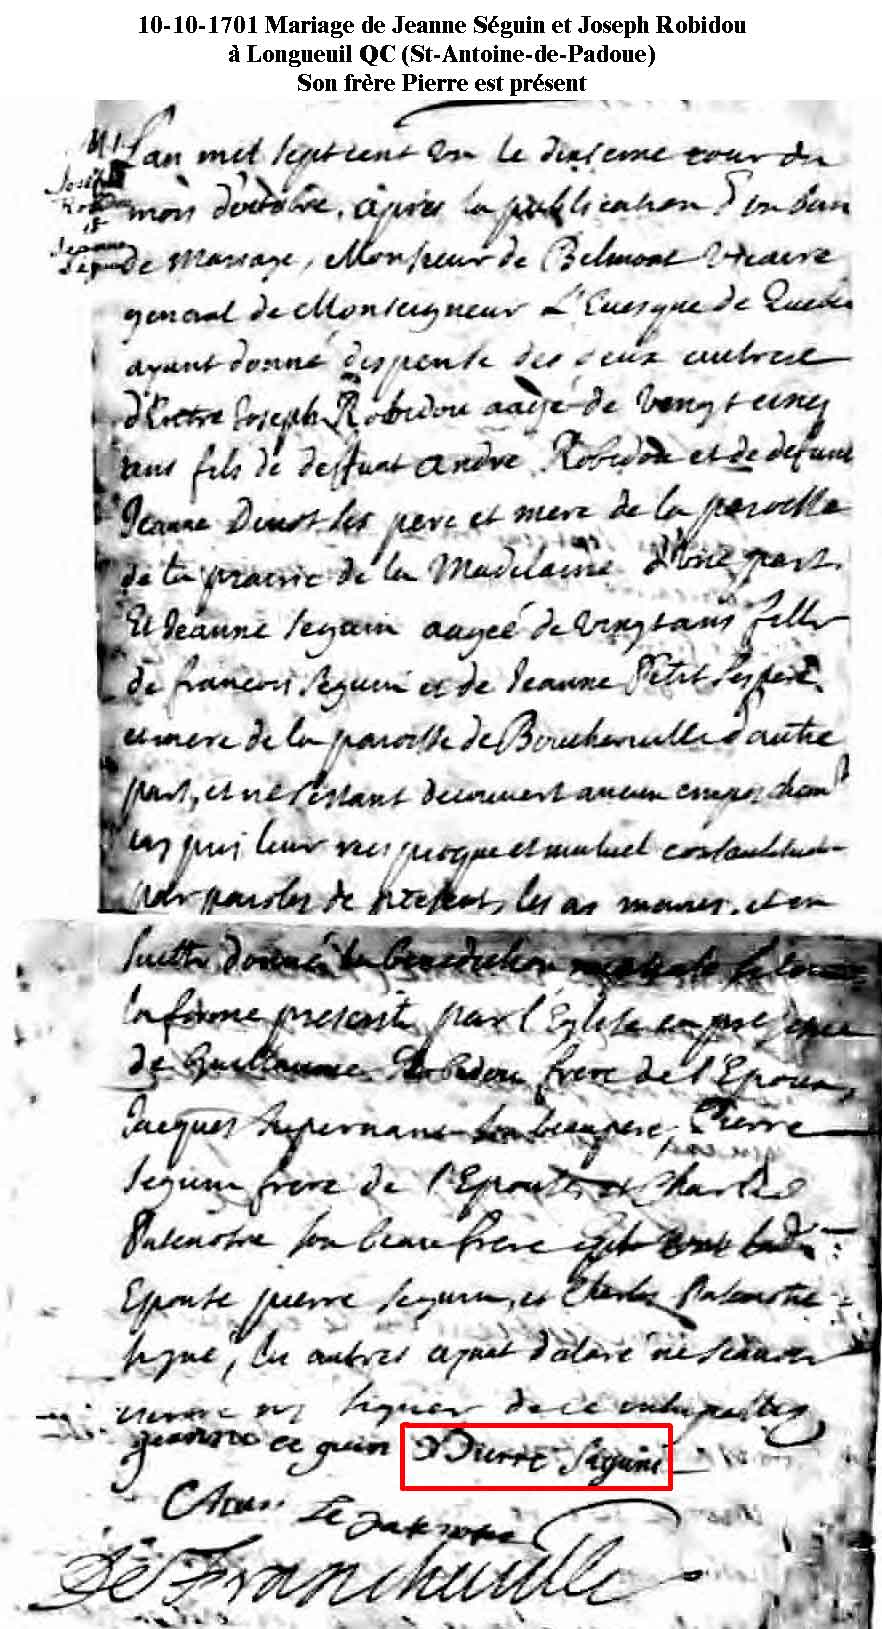 10-10-1701 Mariage de Jeanne Séguin et Joseph Robidou
à Longueuil QC (St-Antoine-de-Padoue)
Son frère Pierre est présent
L'an mil sept cent un le dixieme jour du
mois d'octobre, après la publication d'un ban
de Mariage, Monsieur de Belmont Vicaire
general de Monseigneur L'Evesque de Quebec
ayant donné dispense des deux autres
Joseph Robidou aagé de vingt cinq
ans fils de deffunt André Robidou et de defunte
Jeanne Denot ses pere et mere de la paroisse
de la prairie de la Madelaine d'une part.
Et Jeanne Seguin aageé de vingt ans fille
de francois Seguin et de Jeanne Petit ses pere
et mere de la paroisse de Boucherville d'autre
part, et ne s'estant decouvert aucun
leur et mutuel
par paroles de present, les ay mariés, et en
suitte donné la benediction
la forme prescrite par l'Eglise en presence
de Guillaume Robidou frere de l'Epoux,
Jacques Supernant son beaupere, Pierre
Seguin frere de l'Epouse et Charles
Patenostre son beau frere
Epouse pierre Seguin, et Charles Patenostre
signé, les autres ayant declaré ne scavoir
signer de ce
Jeanne ce guin Pierre Seguin
De Francheville
Joseph
Robidou
et
Jeanne
Seguin